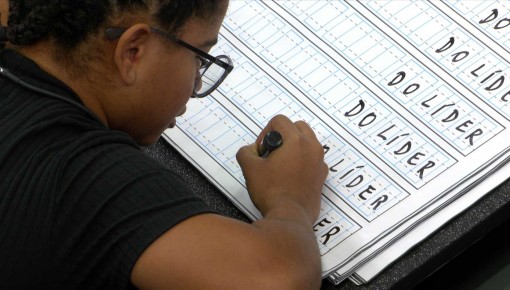 DO
DO LÍDER
DO LÍDER
DO LÍDER
LÍDER
ER